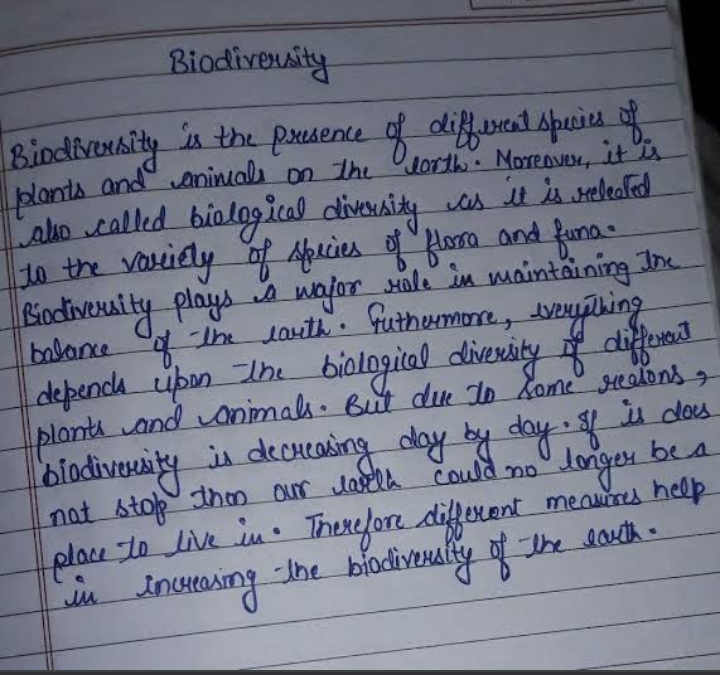 Biodiversity
Biodiversity is the presence of different species of
plants and animals on the earth. Moreover, it is
also called biological diversity as it is releated
to the variety of species of flora and funa.
Biodiversity plays a major role in maintaining the
balance of the earth. Futhermore, everything
depends upon the biological diversity of different
plants and animals. But due to some reasons,
biodiversity is decreasing day by day. If is does
not stop then our earth could no longer be a
place to live in. Therefore different measures help
in increasing the biodiversity of the earth.